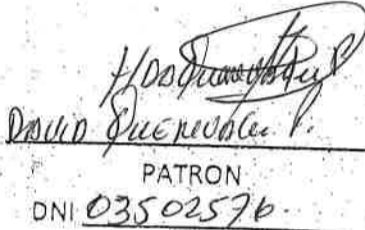 DAVID QUEREVALU P.
PATRON
DNI 03502576